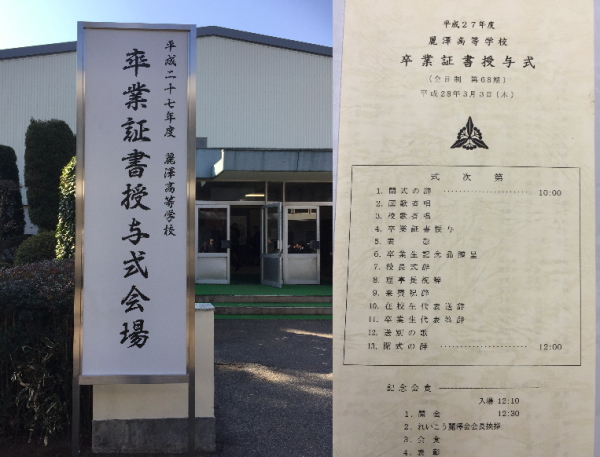 平成二十七年度 麗澤高等学校
卒業証書授与式会場
平成27年度
麗澤高等学校
卒業証書授与式
(全日制 第68期)
平成28年3月3日(木)
式次第
1. 開式の辞 10:00
2. 国歌斉唱
3. 校歌斉唱
4. 卒業証書授与
5. 表彰
6. 卒業生記念品贈呈
7. 校長式辞
8. 理事長祝辞
9. 来賓祝辞
10. 在校生代表送辞
11. 卒業生代表答辞
12. 送別の歌
13. 閉式の辞 12:00
記念会食
入場 12:10
1. 開会 12:30
2. れいこう麗澤会会長挨拶
3. 会食
4. 表彰